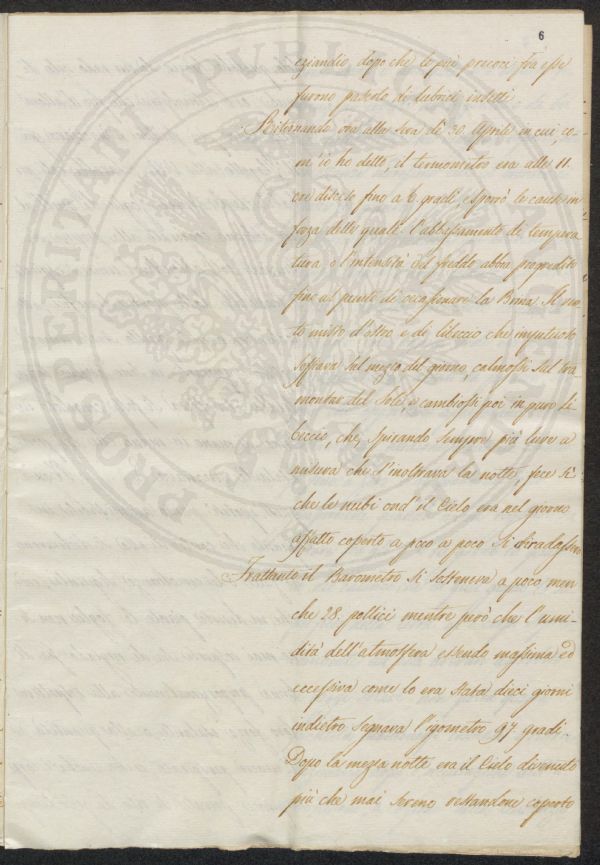 6
eziandio, dopo che le più precoci fra esse
furono pascolo de lubrici insetti.
Ritornando ora alla sera di 30. Aprile in cui, co-
m'io ho detto, il termometro era alle 11.
ore disceso fino a 6 gradi, esporrò le cause in
forza delle quali l'abbassamento di tempera
tura e l'intensità del freddo abbia progredito
fino al punto di occasionare la Brina. Il ven
to misto d'ostro e di libeccio che impetuoso
soffiava sul mezzo del giorno, calmossi sul tra
montar del Sole, e cambiossi poi in puro li
beccio, che, spirando sempre più lieve a
misura che s'inoltrava la notte, fece sì
che le nubi ond'il Cielo era nel giorno
affatto coperto a poco a poco si diradassero
Frattanto il Barometro si sosteneva a poco men
che 28. pollici mentre però che l'umi-
dità dell'atmosfera essendo massima ed
eccessiva come lo era stata dieci giorni
indietro segnava l'igometro 97. gradi.
Dopo la mezza notte era il Cielo divenuto
più che mai sereno restandone coperto
PROSPERITATI PUBLICAE